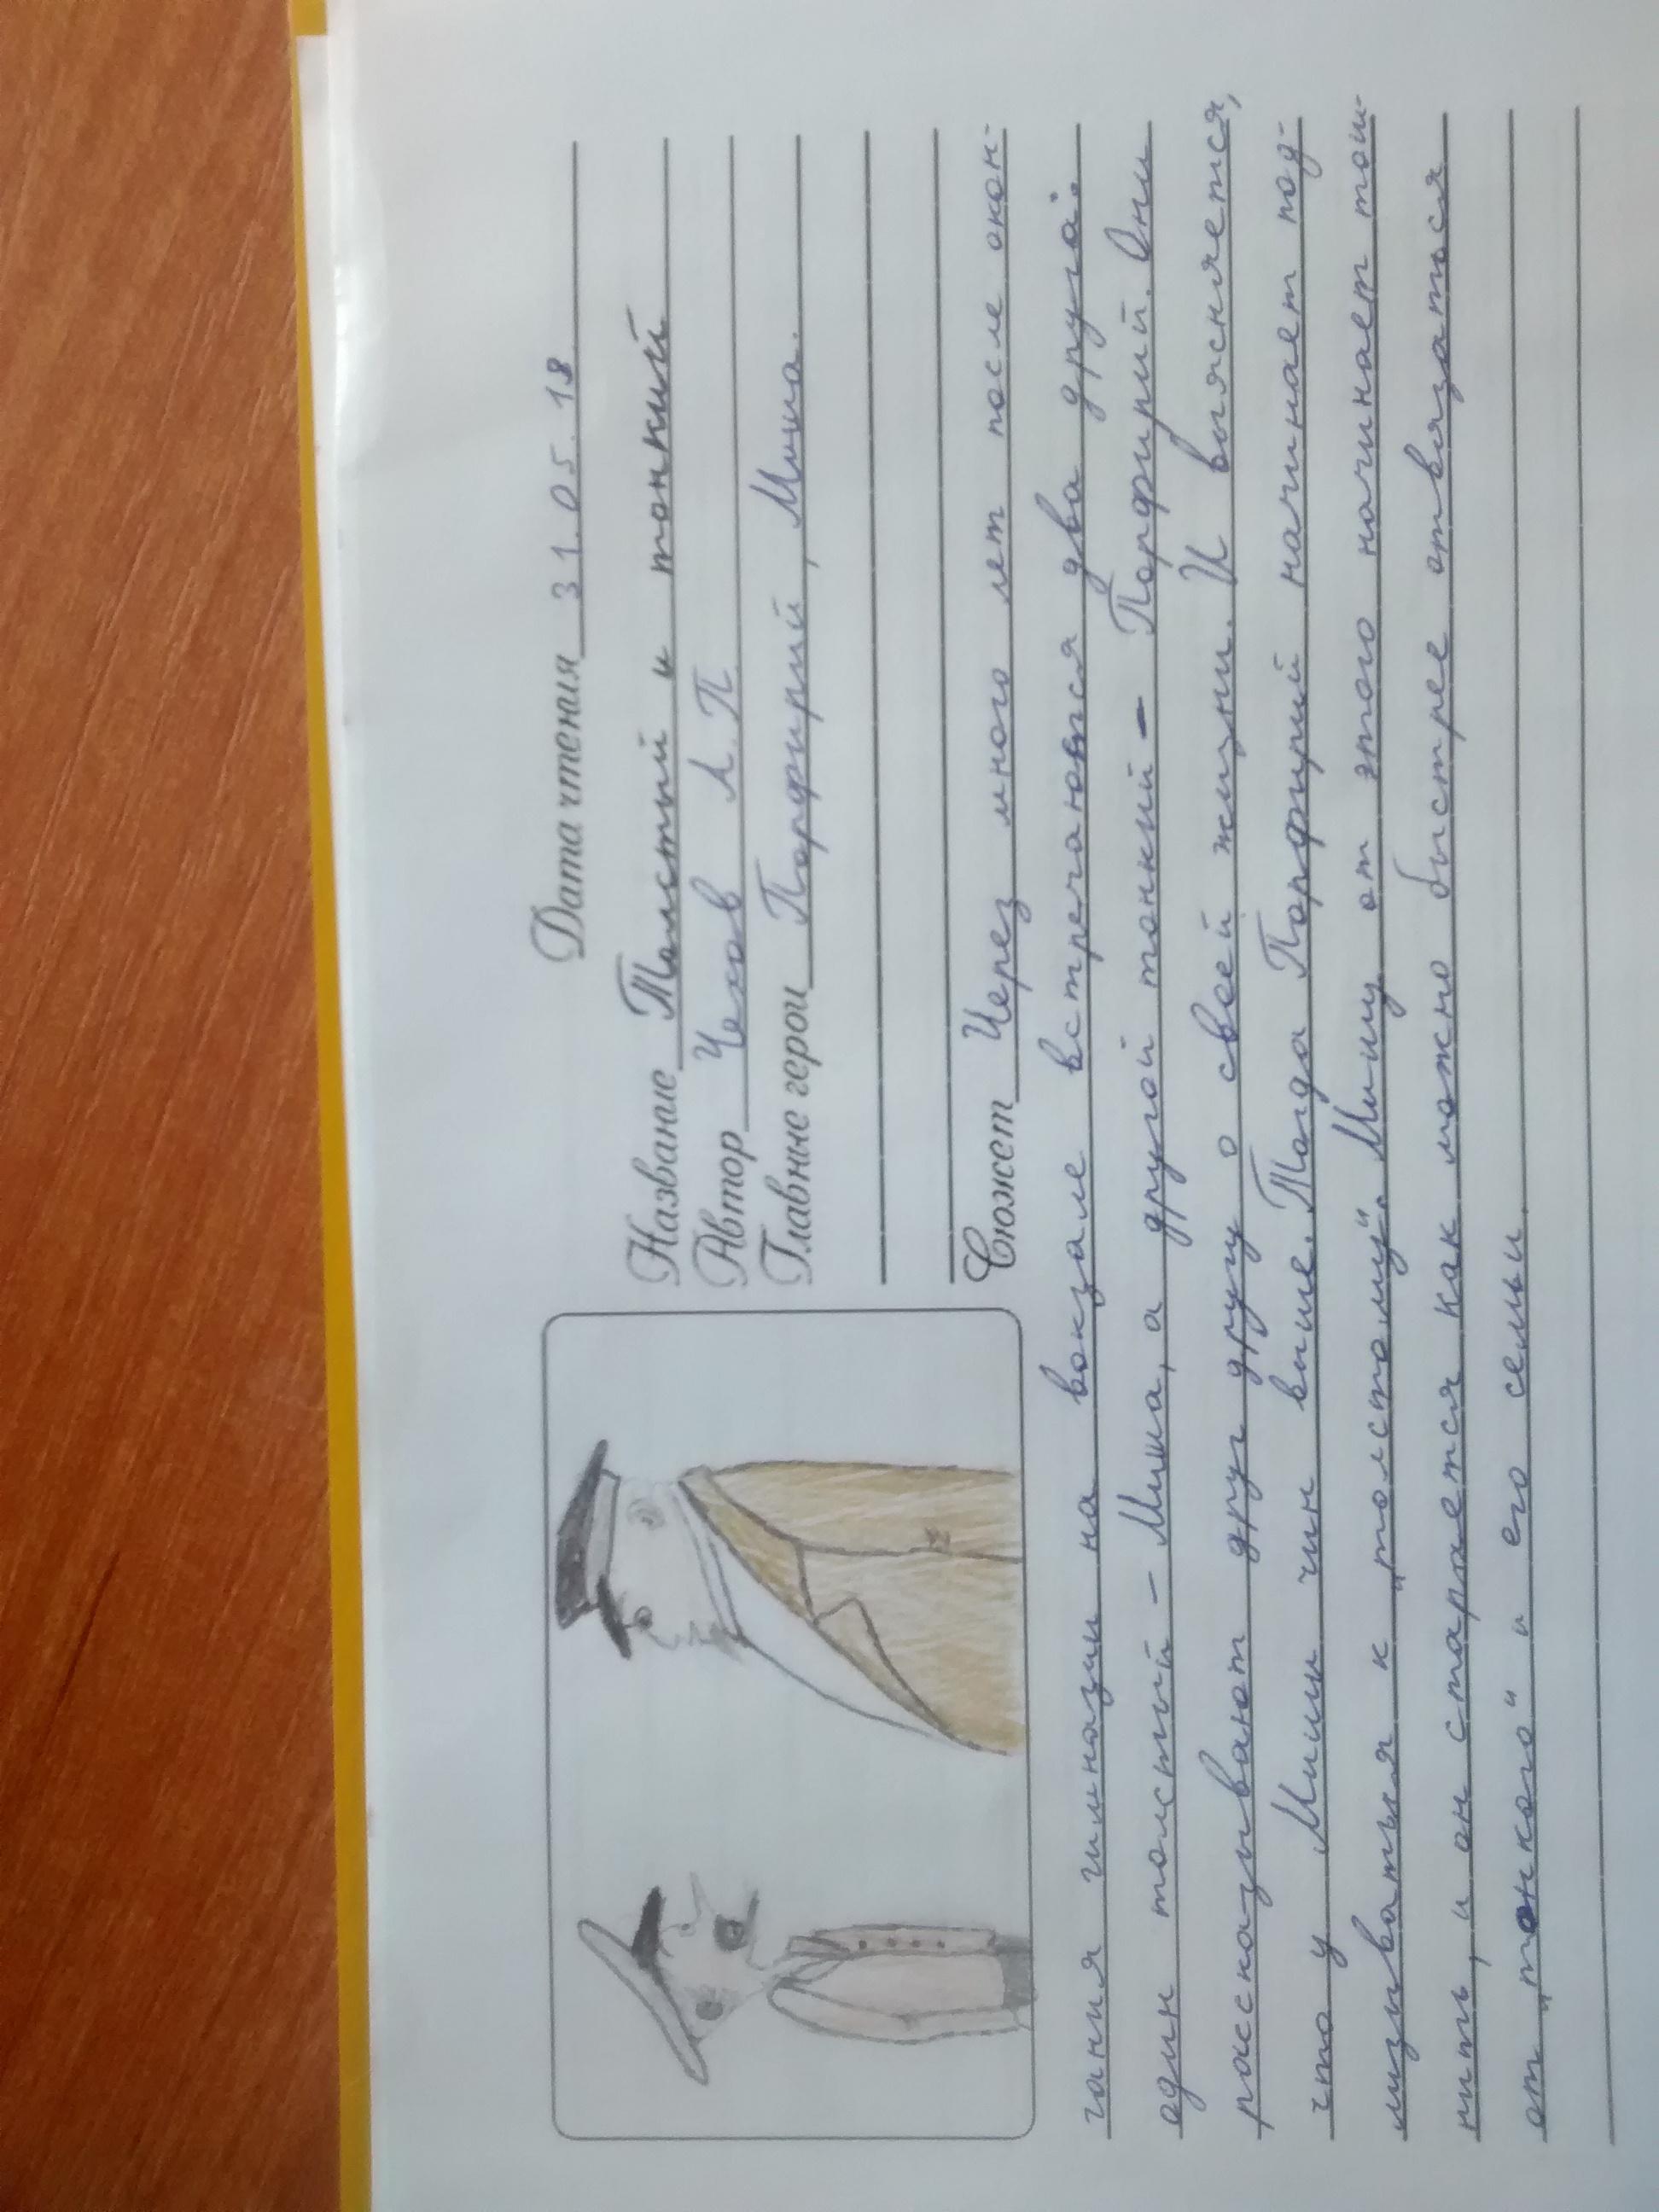 Дата чтения 31.05.18
Название Толстый и тонкий
Автор Чехов А.П
Главные герои Порфирий, Миша.
Сюжет Через много лет после окон-
чания гимназии на вокзале встречаются два друга:
один толстый - Миша, а другой тонкий - Порфирий. Они
рассказывают друг другу о своей жизни. И выясняется,
что у Миши чин выше. Тогда Порфирий начинает под-
лизываться к „толстому“. Мишу от этого начинает тош-
нить, и он старается как можно быстрее отвязаться
от „тонкого“ и его семьи.